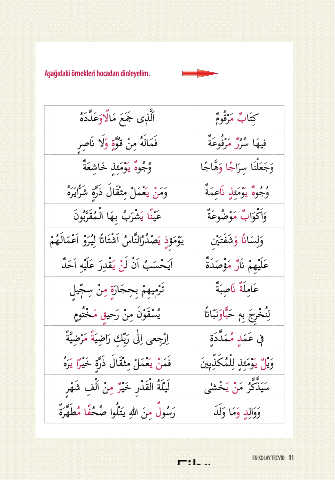 Aşağıdaki örnekleri hocadan dinleyelim.
كِتَابٌ مَرْقُومٌ اَلَّذِى جَمَعَ مَالًا وَعَدَّدَهُ
فِيهَا سُرُرٌ مَرْفُوعَةٌ فَمَالَهُ مِنْ قُوَّةٍ وَلَا نَاصِرٍ
وَجَعَلْنَا سِرَاجًا وَهَّاجًا وُجُوهٌ يَوْمَئِذٍ خَاشِعَةٌ
وُجُوهٌ يَوْمَئِذٍ نَاعِمَةٌ وَمَنْ يَعْمَلْ مِثْقَالَ ذَرَّةٍ شَرًّايَرَهُ
وَاَكْوَابٌ مَوْضُوعَةٌ عَيْنًا يَشْرَبُ بِهَا الْمُقَرَّبُونَ
وَلِسَانًا وَشَفَتَيْنِ يَوْمَئِذٍ يَصْدُرُالنَّاسُ اَشْتَاتًا لِيُرَوْا اَعْمَالَهُمْ
عَلَيْهِمْ نَارٌ مُؤْصَدَةٌ اَيَحْسَبُ اَنْ لَنْ يَقْدِرَ عَلَيْهِ اَحَدٌ
عَامِلَةٌ نَاصِبَةٌ تَرْمِيهِمْ بِحِجَارَةٍ مِنْ سِجِّيلٍ
لِنُخْرِجَ بِهِ حَبًّاوَنَبَاتًا يُسْقَوْنَ مِنْ رَحِيقٍ مَخْتُومٍ
فِى عَمَدٍ مُمَدَّدَةٍ اِرْجِعِى اِلٰى رَبِّكِ رَاضِيَةً مَرْضِيَّةً
وَيْلٌ يَوْمَئِذٍ لِلْمُكَذِّبِينَ فَمَنْ يَعْمَلْ مِثْقَالَ ذَرَّةٍ خَيْرًا يَرَهُ
سَيَذَّكَّرُ مَنْ يَخْشٰى لَيْلَةُ الْقَدْرِ خَيْرٌ مِنْ اَلْفِ شَهْرٍ
وَوَالِدٍ وَمَا وَلَدَ رَسُولٌ مِنَ اللهِ يَتْلُوا صُحُفًا مُطَهَّرَةً
91